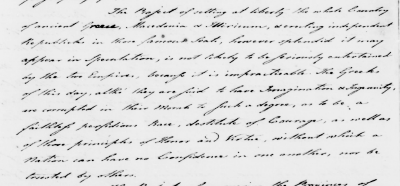 The Project of setting at liberty the whole Country
of ancient Greece, Macedonia & erecting independent
Republicks in those famous Seats, however splendid it may
appear in Speculation, is not likely to be seriously entertained
by the two Empires, because it is impracticable. The Greeks
of this day, altho they are said to have Imagination & Ingenuity,
are corrupted in their Morals to such a degree, as to be, a
faithless perfidious Race, destitute of Courage, as well as
of those principles of Honor and Virtue, without which a
Nation can have no Confidence in one another, nor be
trusted by others.
the Provinces of